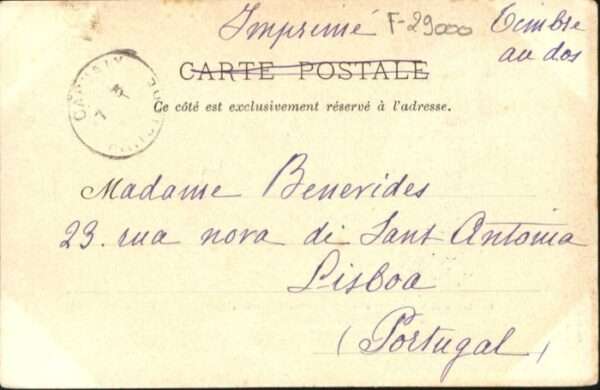 Imprimé F-29000 Timbre
au dos
CARTE POSTALE
Ce côté est exclusivement réservé à l'adresse.
Madame Benerides
23. rua nova di Sant Antonia
Lisboa
(Portugal)